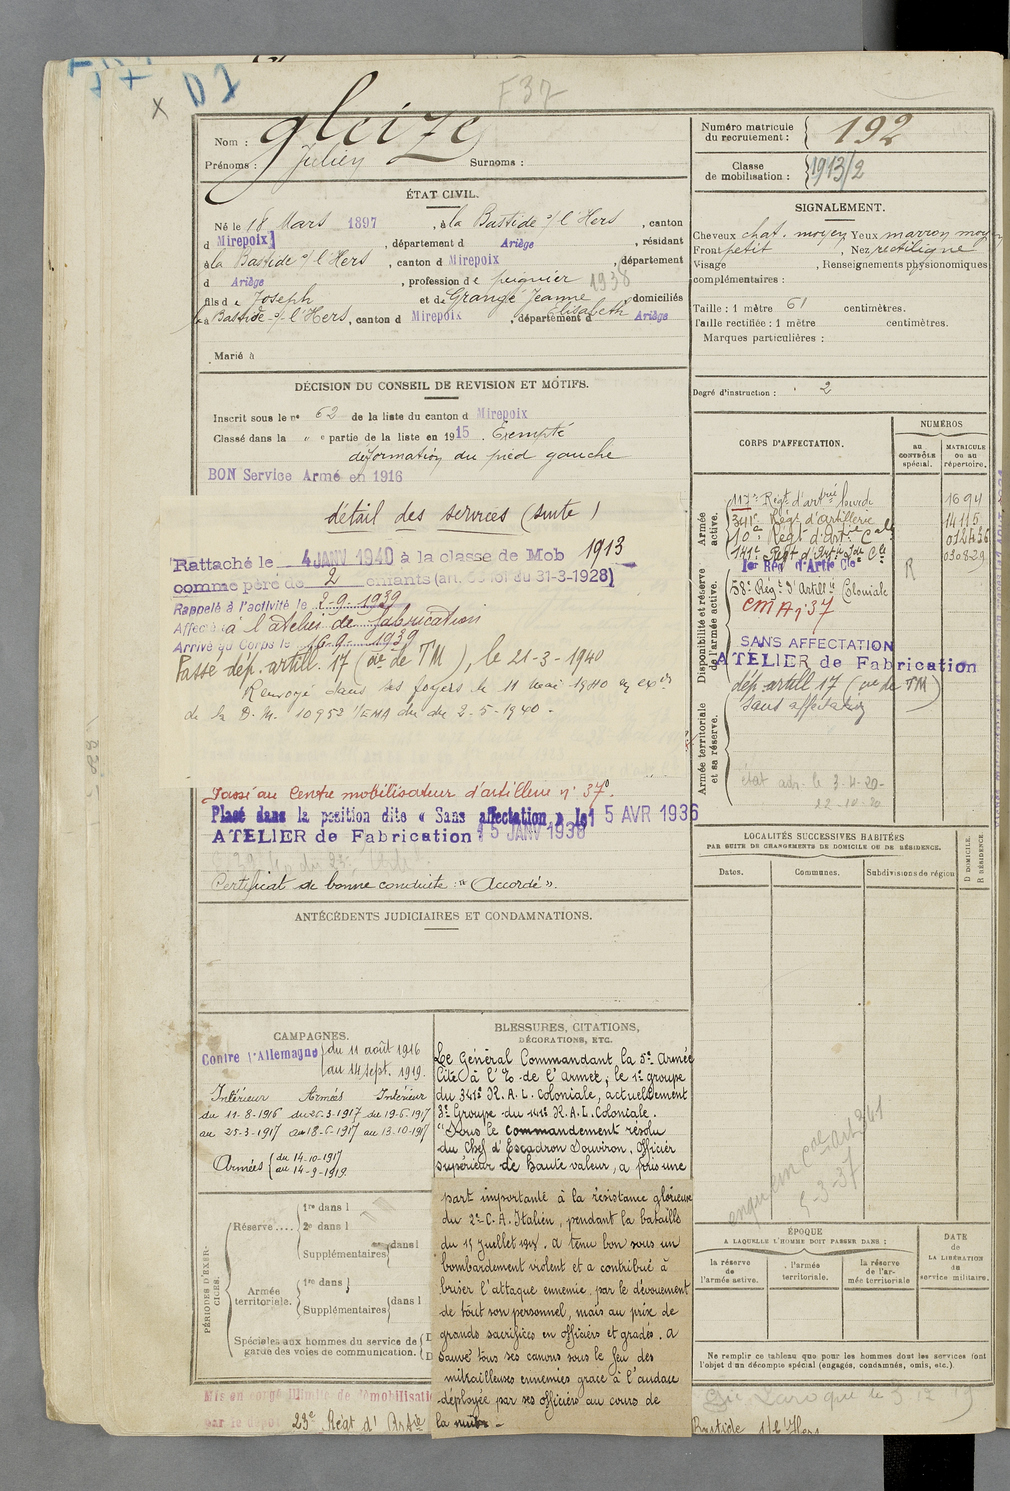 F 37
Nom : Gleizes
Prénoms : Julien Surnoms :
Numéro matricule du recrutement : 192
Classe de mobilisation : 1913/2
ÉTAT CIVIL.
Né le 18 Mars 1897, à la Bastide s/ l'Hers, canton
d Mirepoix, département d Ariège, résidant
à la Bastide s/ l'Hers, canton d Mirepoix, département
d Ariège, profession de peignier 1938
fils de Joseph et de Grangé Jeanne Elisabeth domiciliés
à la Bastide s/ l'Hers, canton d Mirepoix, département d Ariège
Marié à
SIGNALEMENT.
Cheveux chat. moyen Yeux marron moyen
Front petit, Nez rectiligne
Visage , Renseignements physionomiques
complémentaires :
Taille : 1 mètre 61 centimètres.
Taille rectifiée : 1 mètre centimètres.
Marques particulières :
Degré d'instruction : 2
DÉCISION DU CONSEIL DE REVISION ET MOTIFS.
Inscrit sous le n° 62 de la liste du canton d Mirepoix
Classé dans la " e partie de la liste en 1915. Exempté
déformation du pied gauche
BON Service Armé en 1916
détail des services (suite)
Rattaché le 4 JANV 1940 à la classe de Mob 1913
comme père de 2 enfants (art. 58 loi du 31-3-1928)
Rappelé à l'activité le 2-9-1939
Affecté à l'atelier de fabrication
Arrivé au Corps le 16-9-1939
Passé dép. artill. 17 (    de TM), le 21-3-1940
Renvoyé dans ses foyers le 11 mai 1940 en exon
de la D.M. 10952 1/EMA du 2-5-1940.
Passé au Centre mobilisateur d'artillerie n° 37.
Placé dans la position dite « Sans affectation » le 15 AVR 1936
ATELIER de Fabrication 15 JANV 1938
Certificat de bonne conduite : "Accordé".
ANTÉCÉDENTS JUDICIAIRES ET CONDAMNATIONS.
CORPS D'AFFECTATION.
NUMÉROS
AU CONTRÔLE spécial.
MATRICULE OU AU répertoire.
Armée active.
117e Régt d'artrie lourde 1694
341e Régt d'Artillerie 14115
10e Régt d'Artie Cale 012436
141e Régt d'Artie Lde Cle 030329
Disponibilité et réserve de l'armée active.
1er Rég. d'Artie Cle R
58e Régt d'Artillie Coloniale
CM Aie 37
SANS AFFECTATION
ATELIER de Fabrication
dép artill 17 (    de TM)
Sans affectation
Armée territoriale et sa réserve.
état adr. le 3-4-20-
22-10-20
LOCALITÉS SUCCESSIVES HABITÉES
PAR SUITE DE CHANGEMENTS DE DOMICILE OU DE RÉSIDENCE.
Dates. Communes. Subdivisions de région
D DOMICILE. R RÉSIDENCE
CAMPAGNES.
Contre l'Allemagne
du 11 août 1916
au 14 sept. 1919.
Intérieur Armées Intérieur
du 11-8-1916 du 26-3-1917 du 19-6-1917
au 25-3-1917 au 18-6-1917 au 13-10-1917
Armées
du 14-10-1917
au 14-9-1919.
BLESSURES, CITATIONS,
DÉCORATIONS, ETC.
Le Général Commandant la 5e Armée
Cite à l'O. de l'Armée, le 1er groupe
du 341e R.A.L. Coloniale, actuellement
3e Groupe du 141e R.A.L. Coloniale.
"Sous le commandement résolu
du Chef d'Escadron Douviron, Officier
supérieur de haute valeur, a pris une
part importante à la résistance glorieuse
du 2e C.A. Italien, pendant la bataille
du 15 Juillet 1918. A tenu bon sous un
bombardement violent et a contribué à
briser l'attaque ennemie, par le dévouement
de tout son personnel, mais au prix de
grands sacrifices en officiers et gradés. A
sauvé tous ses canons sous le feu des
mitrailleuses ennemies grâce à l'audace
déployée par ses officiers au cours de
la nuit. -
PÉRIODES D'EXERCICES.
Réserve....
1re dans l
2e dans l
Supplémentaires dans l
Armée territoriale.
1re dans l
Supplémentaires dans l
Spéciales aux hommes du service de
garde des voies de communication.
5-3-37
ÉPOQUE
A LAQUELLE L'HOMME DOIT PASSER DANS :
la réserve de l'armée active.
l'armée territoriale.
la réserve de l'armée territoriale
DATE de LA LIBÉRATION du service militaire.
Ne remplir ce tableau que pour les hommes dont les services font
l'objet d'un décompte spécial (engagés, condamnés, omis, etc.).
Mis en congé illimité de démobilisation
par le dépôt 23e Régt d'Artie
Bastide s/ l'Hers